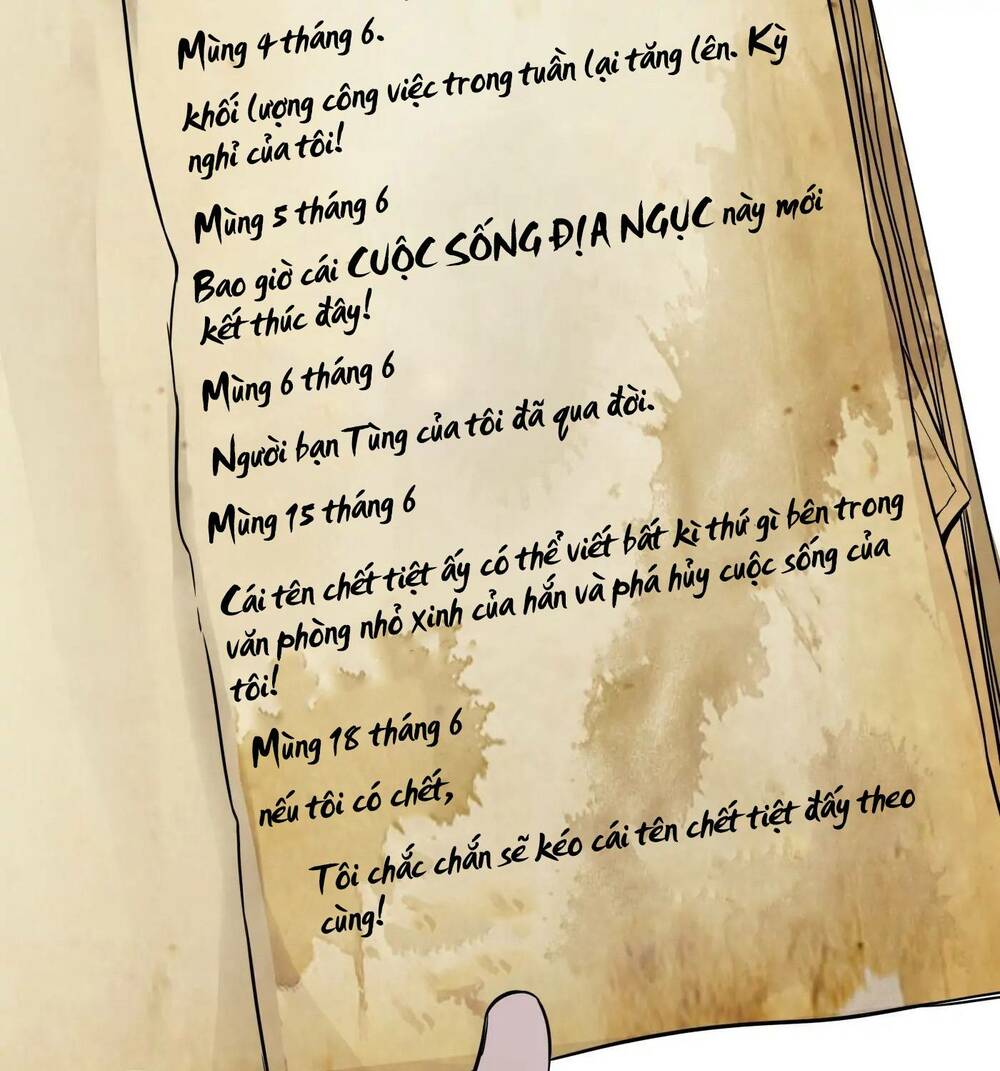 Mùng 4 tháng 6.
khối lượng công việc trong tuần lại tăng lên. Kỳ
nghỉ của tôi!
Mùng 5 tháng 6
Bao giờ cái CUỘC SỐNG ĐỊA NGỤC này mới
kết thúc đây!
Mùng 6 tháng 6
Người bạn Tùng của tôi đã qua đời.
Mùng 15 tháng 6
Cái tên chết tiệt ấy có thể viết bất kì thứ gì bên trong
văn phòng nhỏ xinh của hắn và phá hủy cuộc sống của
tôi!
Mùng 18 tháng 6
nếu tôi có chết,
Tôi chắc chắn sẽ kéo cái tên chết tiệt đấy theo
cùng!